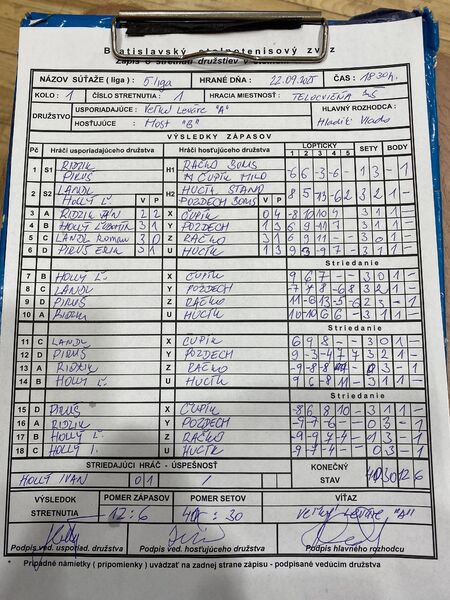 Bratislavský stolnotenisový zväz
Zápis o stretnutí družstiev v stolnom
NÁZOV SÚŤAŽE ( liga ) : 5 liga HRANÉ DŇA : 22.09.2025 ČAS : 18 30 h.
KOLO : 1 ČÍSLO STRETNUTIA : 1 HRACIA MIESTNOSŤ : TELOCVIČŇA ZŠ
DRUŽSTVO USPORIADAJÚCE : Veľké Leváre "A" HLAVNÝ ROZHODCA :
HOSŤUJÚCE : Most "B" Hladík Vlado
VÝSLEDKY ZÁPASOV
Pč Hráči usporiadajúceho družstva Hráči hosťujúceho družstva LOPTIČKY SETY BODY
1 2 3 4 5
1 S1 RIDZIK PIRUŠ H1 RAČKO BORIS M ČUPÍK MILO -6 6 -3 -6 - 1 3 - 1
2 S2 LANDL HOLLÝ Ľ. V P H2 HUCTA STANO POZDECH BORIS V P 8 5 -13 -6 2 3 2 1 -
3 A RIDZIK JÁN 2 2 X ČUPÍK 0 4 -8 10 10 9 3 1 1 -
4 B HOLLÝ Ľubomír 3 1 Y POZDECH 1 3 6 -9 11 7 3 1 1 -
5 C LANDL Roman 3 0 Z RAČKO 1 3 6 9 11 - - 3 0 1 -
6 D PIRUŠ ERIK 3 1 U HUCTA 1 3 9 -3 9 7 - 3 1 1 -
Striedanie
7 B HOLLÝ Ľ. X ČUPÍK 9 6 7 - - 3 0 1 -
8 C LANDL Y POZDECH -7 7 8 -6 8 3 2 1 -
9 D PIRUŠ Z RAČKO 11 -6 13 -5 -6 2 3 - 1
10 A RIDZIK U HUCTA -10 10 6 6 - 3 1 1 -
Striedanie
11 C LANDL X ČUPÍK 6 9 8 - - 3 0 1 -
12 D PIRUŠ Y POZDECH 9 -3 -4 7 7 3 2 1 -
13 A RIDZIK Z RAČKO -9 -8 -8 - 0 3 - 1
14 B HOLLÝ Ľ. U HUCTA 9 6 -8 11 3 1 1 -
Striedanie
15 D PIRUŠ X ČUPÍK -8 6 8 10 - 3 1 1 -
16 A RIDZIK Y POZDECH -9 -7 -6 - - 0 3 - 1
17 B HOLLÝ Ľ. Z RAČKO -9 -9 7 -4 - 1 3 - 1
18 C HOLLÝ I. U HUCTA -9 -7 -4 - - 0 3 - 1
STRIEDAJÚCI HRÁČ - ÚSPEŠNOSŤ KONEČNÝ
HOLLÝ IVAN 0 1 / STAV 30 12 6
VÝSLEDOK POMER ZÁPASOV POMER SETOV VÍŤAZ
STRETNUTIA 12 : 6 : 30 Veľké Leváre "A"
Podpis ved. usporiad. družstva Podpis ved. hosťujúceho družstva Podpis hlavného rozhodcu
Prípadné námietky ( pripomienky ) uvádzať na zadnej strane zápisu - podpísané vedúcim družstva